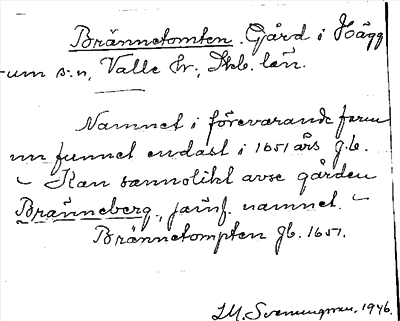 Brännetomten. Gård i Hägg-
um s:n, Valle hr., Skb. län.
Namnet i förevarande form
nu funnet endast i 1651 års jb.
– Kan sannolikt avse gården
Bränneberg, jämf. namnet. –
Brännetompten Jb. 1651.
I.M. Svenungsson, 1946.